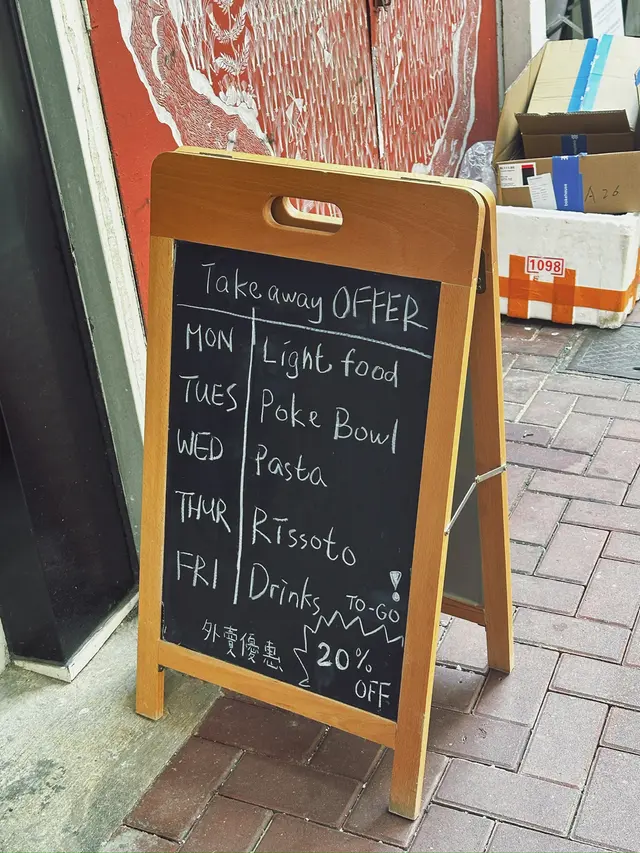 Take away OFFER
MON Light food
TUES Poke Bowl
WED Pasta
THUR Rissoto
FRI Drinks
TO-GO!
外賣優惠
20% OFF
1098
A36